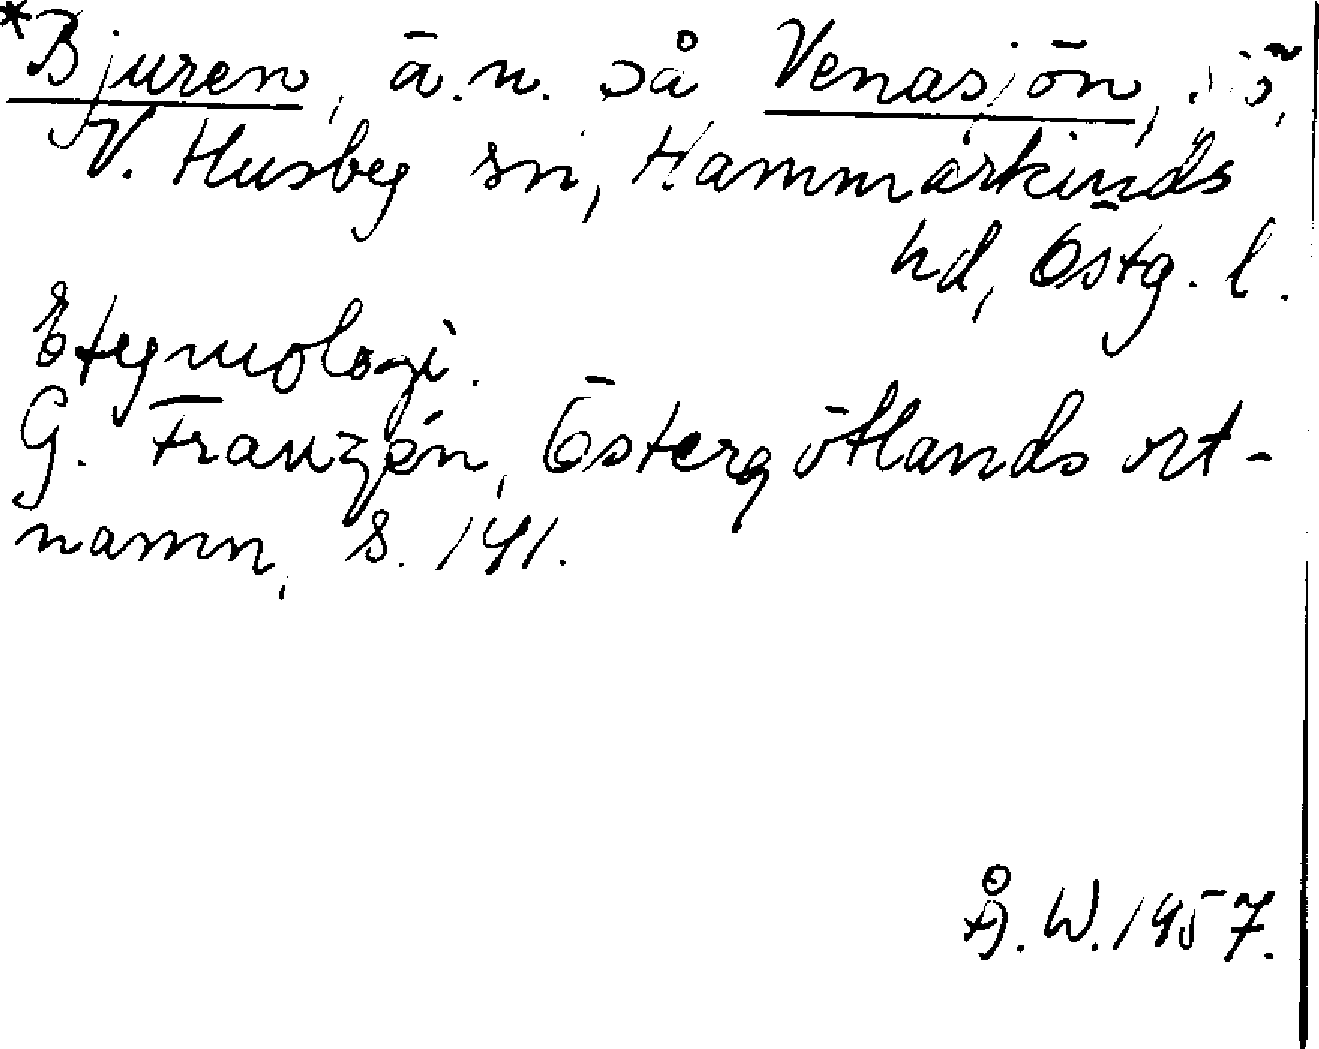 *Bjuren, ä.n. på Venasjön, sjö,
V. Husby sn, Hammarkinds
hd, Östg. l.
Etymologi.
G. Franzén, Östergötlands ort-
namn, s. 141.
Å. W. 1957.